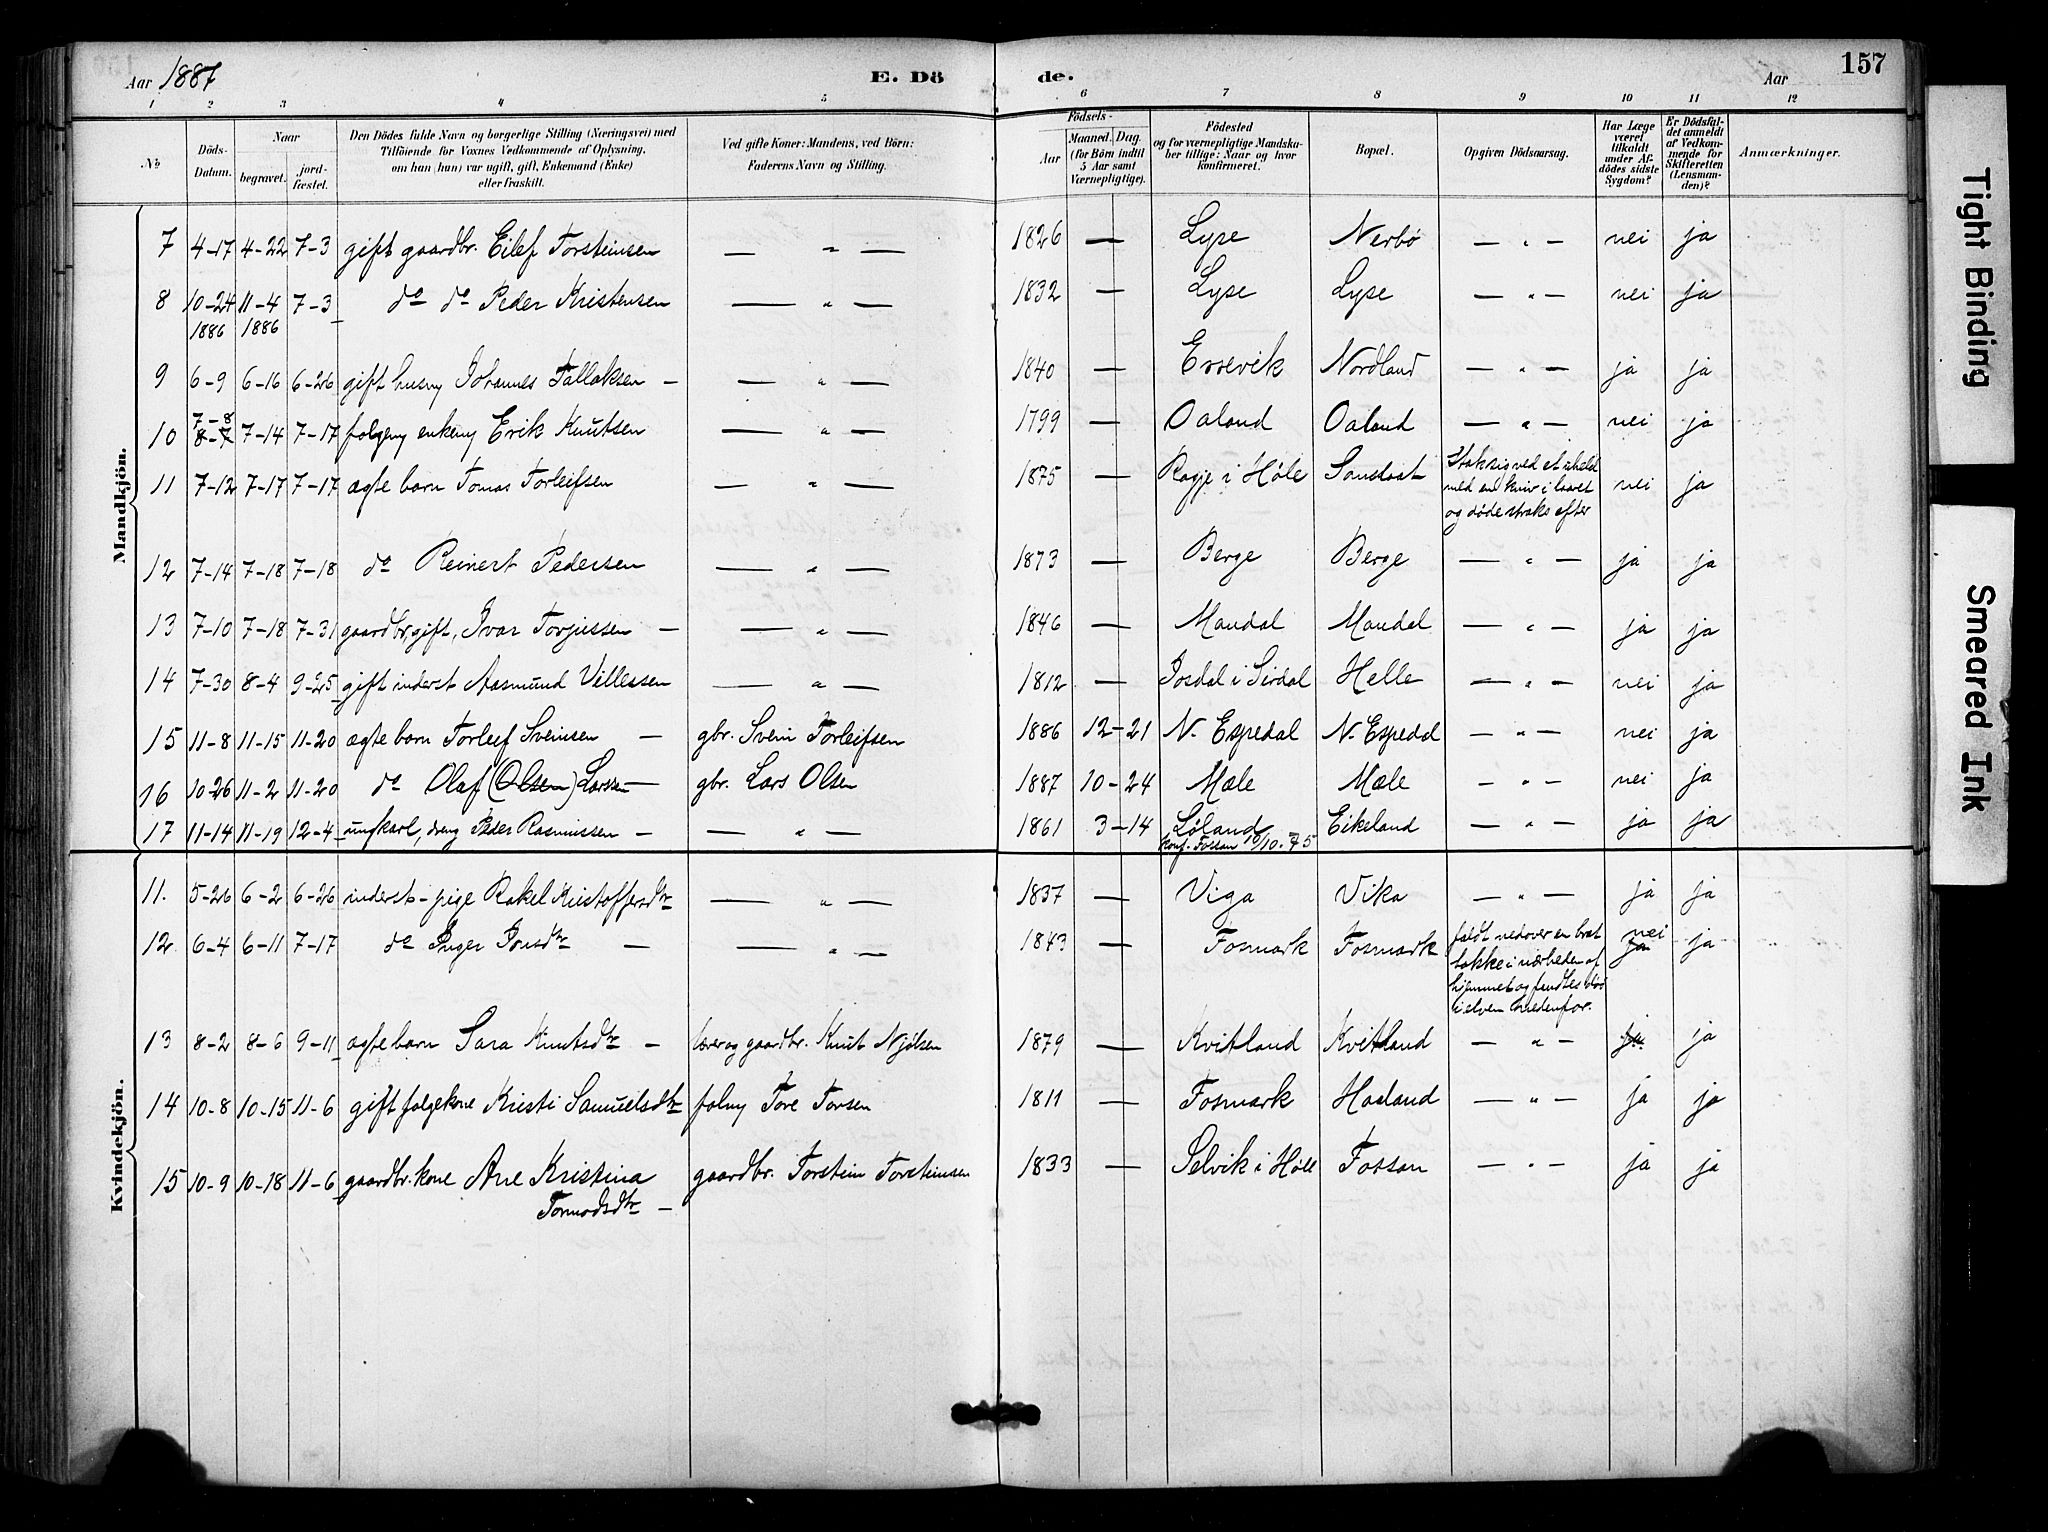 Aar 1887
E. Dö
de.
Aar
157
1 2 3 4 5 6 7 8 9 10 11 12
No
Döds-
Datum.
Naar
begravet.
jord-
fæstet.
Den Dödes fulde Navn og borgerlige Stilling (Næringsvei) med
Tilföiende for Voxnes Vedkommende af Oplysning,
om han (hun) var ugift, gift, Enkemand (Enke)
eller fraskilt.
Ved gifte Koner: Mandens, ved Börn:
Faderens Navn og Stilling.
Födsels-
Aar
Maaned. Dag.
(for Börn indtil
5 Aar samt
Værnepligtige).
Födested
og for værnepligtige Mandska-
ber tillige: Naar og hvor
konfirmeret.
Bopæl.
Opgiven Dödsaarsag.
Har Læge
været
tilkaldt
under Af-
dödes sidste
Sygdom?
Er Dödsfal-
det anmeldt
af Vedkom-
mende for
Skifteretten
(Lensman-
den)?
Anmærkninger.
Mandkjön.
7 4-17 4-22 7-3 gift gaardbr. Eilef Torsteinsen — " — 1826 — Lyse Nerbö — " — nei ja
8 10-24 11-4 7-3 do do Peder Kristensen — " — 1832 — Lyse Lyse — " — nei ja
1886 1886
9 6-9 6-16 6-26 gift husmd Johannes Tallaksen — — " — 1840 — Eresvik Nordland — " — ja ja
7-8
10 8-7 7-14 7-17 folgemd enkemd Erik Knutsen — " — 1799 — Oaland Oaland — " — nei ja
11 7-12 7-17 7-17 ægte barn Tomas Torleifsen — " — 1875 — Ragje i Høle Sandsaat Stak sig ved et uheld nei ja
med en kniv i laaret
og døde straks efter
12 7-14 7-18 7-18 do Reinert Pedersen — " — 1873 — Berge Berge — " — ja ja
13 7-10 7-18 7-31 gaardbr, gift, Ivar Torjussen — — " — 1846 — Mandal Mandal — " — ja ja
14 7-30 8-4 9-25 gift inderst Aasmund Villessen — " — 1812 — Josdal i Sirdal Helle — " — nei ja
15 11-8 11-15 11-20 ægte barn Torleif Sveinsen — gbr. Svein Torleifsen 1886 12-21 N. Espedal N. Espedal — " — nei ja
16 10-26 11-2 11-20 do Olaf (Olsen) Larssen — gbr. Lars Olsen 1887 10-24 Mæle Mæle — " — nei ja
17 11-14 11-19 12-4 ungkarl, dreng Peder Rasmussen — — " — 1861 3-14 Løland Eikeland — " — ja ja
konf. Fossan 10/10. 75
Kvindekjön.
11. 5-26 6-2 6-26 inderst-pige Rakel Kristoffersdtr — " — 1837 — Viga Vika — " — ja ja
12 6-4 6-11 7-17 do Inger Jonsdtr — — " — 1843 — Fosmark Fosmark faldt nedover en brat nei ja ja
bakke i nærheden af
hjemmet og fandtes død
i elven nedenfor.
13 8-2 8-6 9-11 ægte barn Sara Knutsdtr — lærer og gaardbr. Knut Njölsen 1879 — Kvitland Kvitland — " — ja ja
14 10-8 10-15 11-6 gift folgekone Kristi Samuelsdtr folmd Tore Torsen 1811 — Fosmark Haaland — " — ja ja
15 10-9 10-18 11-6 gaardbr. kone Ane Kristina gaardbr. Torstein Torsteinsen 1833 — Selvik i Høle Fossan — " — ja ja
Tormodsdtr —
Tight Binding
Smeared Ink